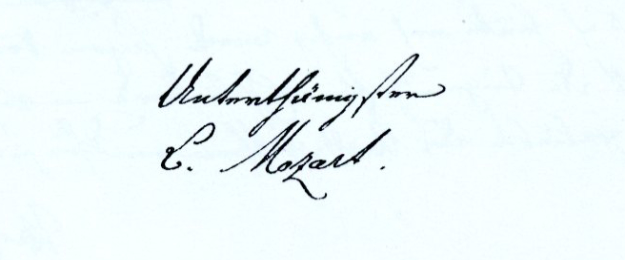 Unterthänigster
C. Mozart.